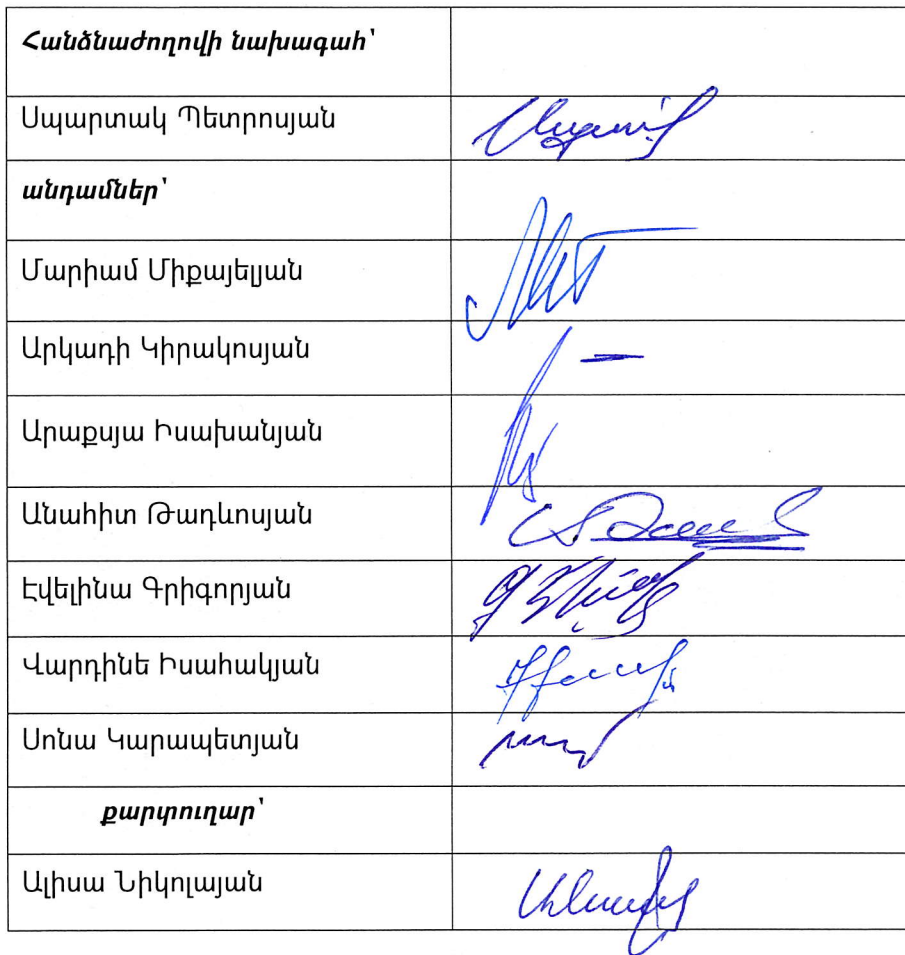 Հանձնաժողովի նախագահ՝
Սպարտակ Պետրոսյան
անդամներ՝
Մարիամ Միքայելյան
Արկադի Կիրակոսյան
Արաքսյա Իսախանյան
Անահիտ Թադևոսյան
Էվելինա Գրիգորյան
Վարդինե Իսահակյան
Սոնա Կարապետյան
քարտուղար՝
Ալիսա Նիկոլայան